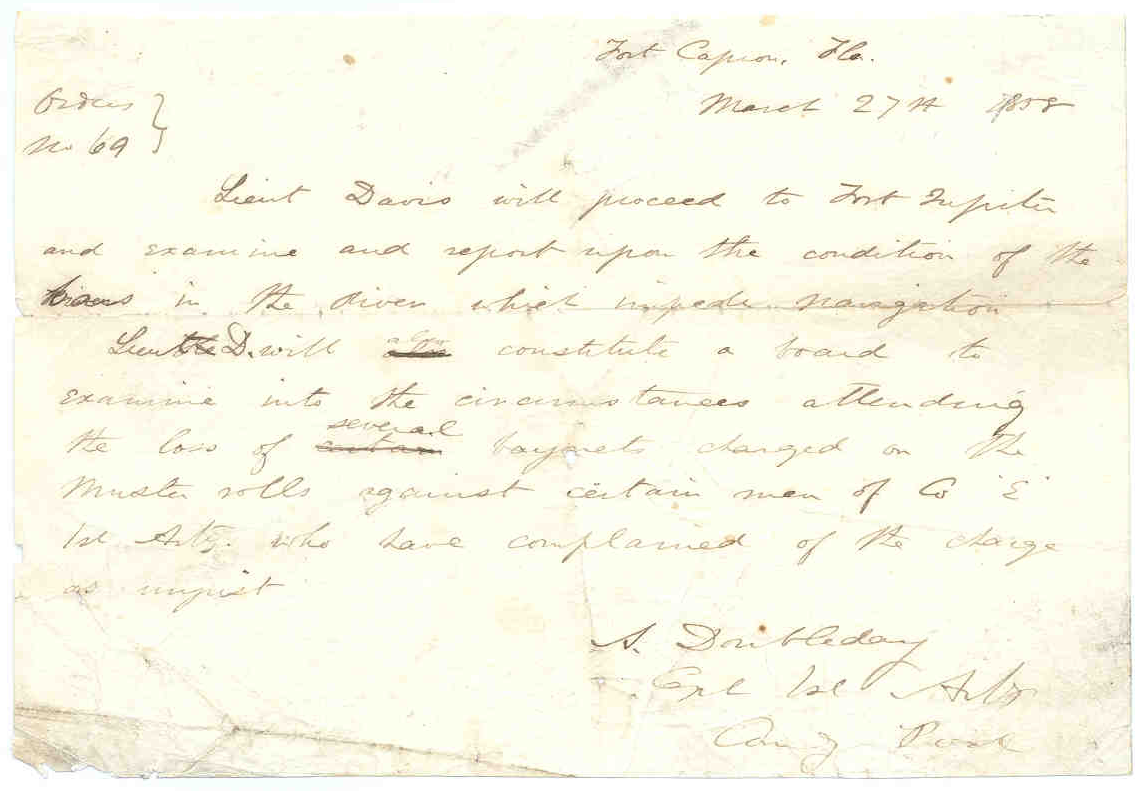 Fort Capron, Fla.
March 27th 1858
Orders
No 69
Lieut Davis will proceed to Fort Jupiter
and examine and report upon the condition of the
in the river which impede navigation
Lieut D. will constitute a board to
examine into the circumstances attending
several
the loss of certain bayonets charged on the
Muster rolls against certain men of Co "E"
1st Arty. who have complained of the charge
as unjust
A. Doubleday
Capt 1st Arty
Comdg Post